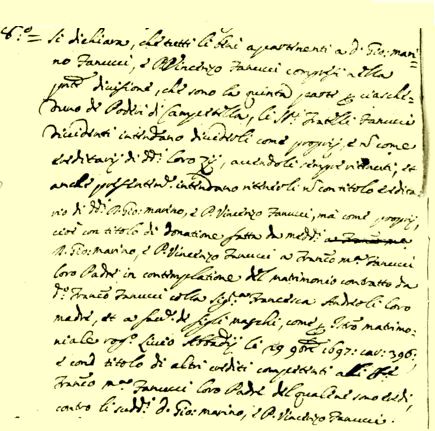 6.° = Si dichiara, che tutti li beni apartinenti a d. Gio: mari=
no Fanucci, e P. Vincenzo Fanucci compresi nella
pnte divisione, che sono la quinta parte per ciasche=
duno de Poderi di Campestella, le SS.ri Fratelli Fanucci
Dividenti intendano dividersli come proprij, e nò come
ereditarij di dd.i loro Zij, avendoli sempre ritenuti, et
anche presentem.te intendano ritenerli nò con titolo eredita=
rio di dd.i d. Gio: marino, e P. Vincenzo Fanucci, mà come proprij,
cioè con titolo di donatione fatta da medd.i
d. Gio: marino, e P. Vincenzo Fanucci a Franco m.a Fanucci
loro Padre in contemplatione del matrimonio contratto da
d.o Franco Fanucci colla Sig.ra Francesca Andreoli loro
madre, et a favore de figli maschi, come per Istro matrimo=
niale rog.o Livio Attadij li 29 9bre 1697: car: 396,
e con titolo di altri crediti competenti
Franco m.a Fanucci loro Padre del quale ne sono eredi,
contro li sudd.i d. Gio: marino, e P. Vincenzo Fanucci.